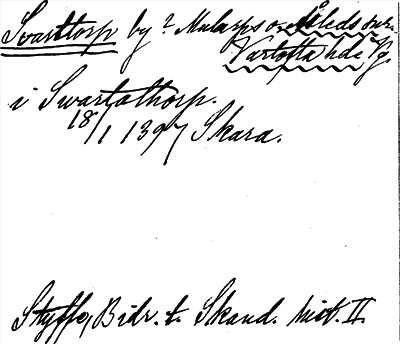 Svarttorp by ? Mularps o. Åsleds sn.
Vartofta hd. Vg.
i Swartathorp.
18/1 1397 Skara.
Styffe, Bidr. t. Skand. hist. II.